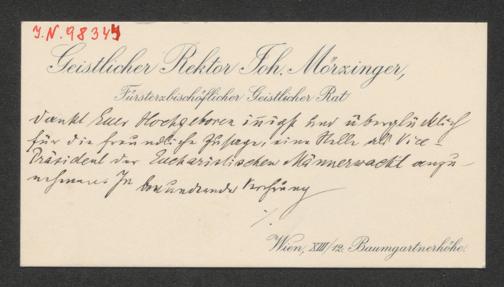 J.N. 98344
Geistlicher Rektor Joh. Mörzinger,
Fürsterzbischöflicher Geistlicher Rat
dankt Euer Hochgeboren innigst und überglücklich
für die freundliche Zusage, eine Stelle als Vice-
Präsident der Eucharistischen Männerwacht anzu-
nehmen. In bewundernder Verehrung
Wien, XIII/12. Baumgartnerhöhe.